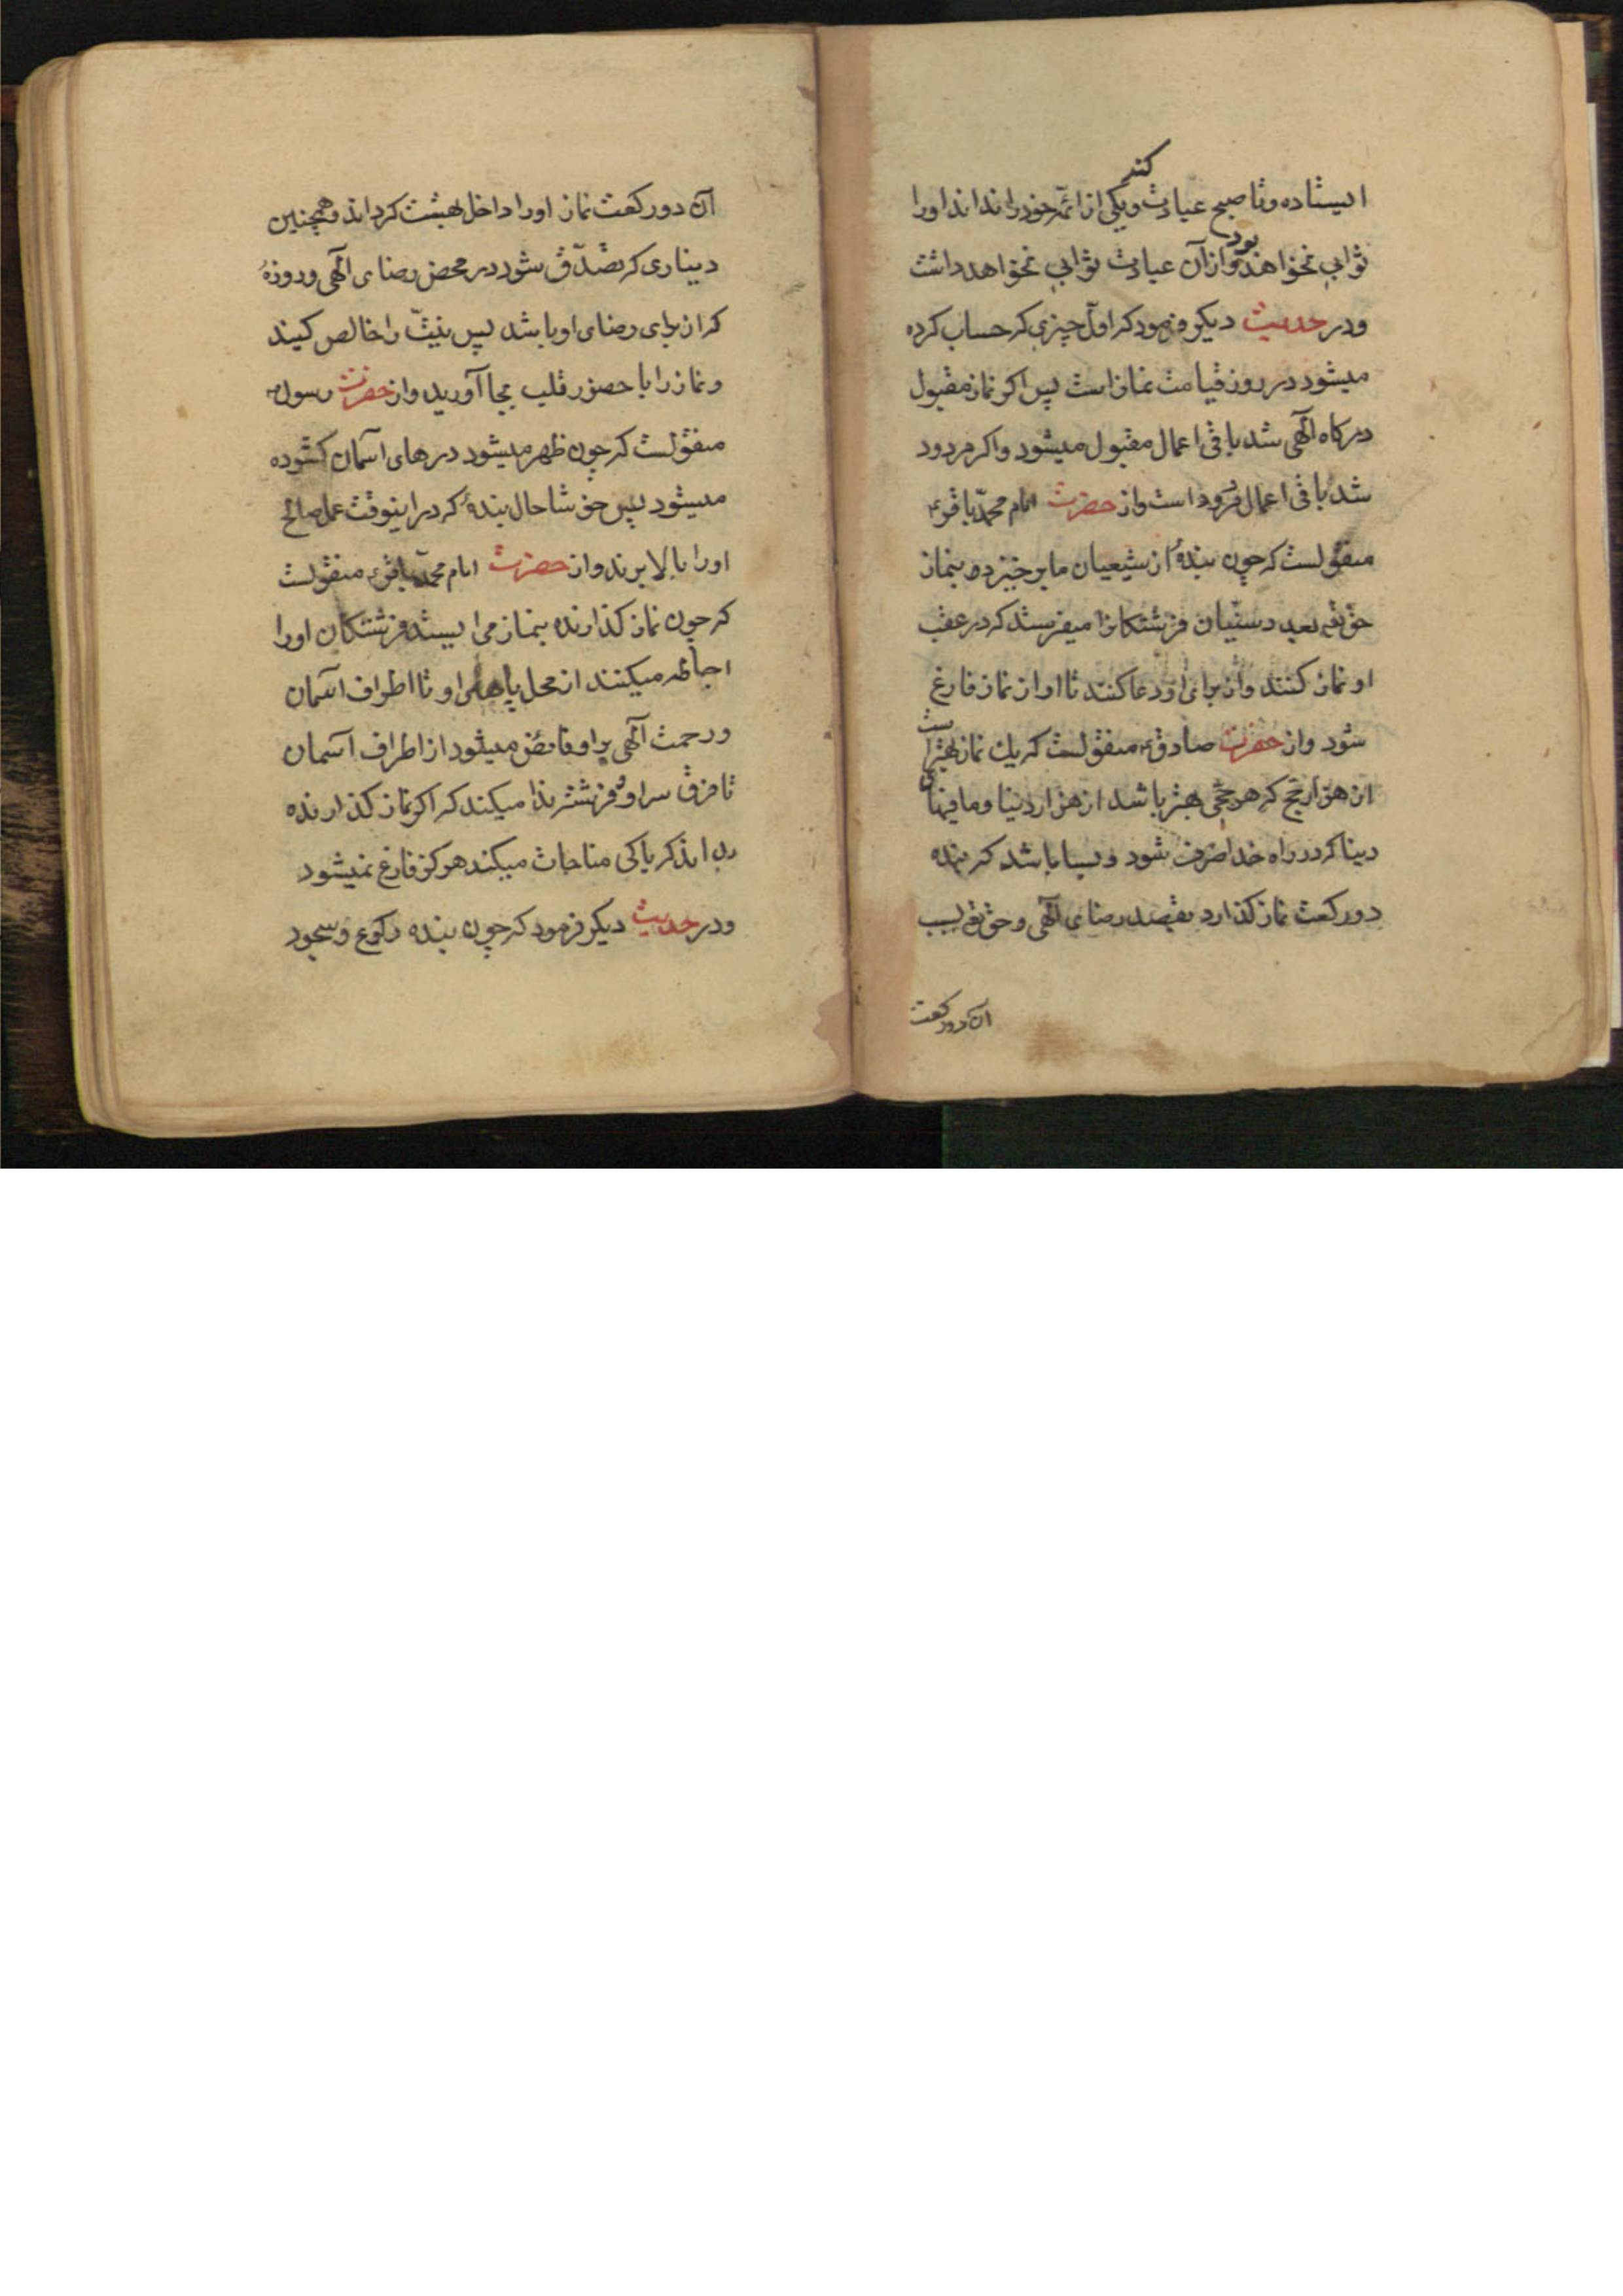 ایستاده و تا صبح عبادت کند و یکی از ائمه خود را نداند او را
ثوابی نخواهند بود و از آن عبادت ثوابی نخواهد داشت
و در حدیث دیکر فرمود که اول چیزی که حساب کرده
میشود در روز قیامت نماز است پس اکر نماز مقبول
درکاه آلهی شد باقی اعمال مقبول میشود و اکر مردود
شد باقی اعمال مردود است و از حضرت امام محمّد باقر ع
منقولست که چون بندهٔ از شیعیان ما برخیزد بنماز
حق تع بعدد سنّیان فرشتکانرا میفرستد که در عقب
او نماز کنند و از برای او دعا کنند تا او از نماز فارغ
شود و از حضرت صادق ع منقولست که یك نماز بهتر است
از هزار حج که هر حجّی بهتر باشد از هزار دنیا و ما فیهای
دینا که در راه خدا صرف شود و بسا باشد که بنده
دو رکعت نماز کذارد بقصد رضای آلهی و حق تع بسبب
آن دو رکعت
آن دو رکعت نماز او را داخل بهشت کرداند و همچنین
دیناری که تصدّق شود در محض رضای آلهی و روزهٔ
که از برای رضای او باشد پس نیّت را خالص کنید
و نماز را با حضور قلب بجا آورید و از حضرت رسول ص
منقولست که چون ظهر میشود درهای آسمان کشوده
میشود پس خوشا حال بندهٔ که در اینوقت عمل صالح
او را بالا برند و از حضرت امام محمّد باقر ع منقولست
که چون نماز کذارنده بنماز می ایستد فرشتکان او را
احاطه میکنند از محل پاهای او تا اطراف آسمان
و رحمت آلهی بر او فایض میشود از اطراف آسمان
تا فرق سر او و فرشته ندا میکند که اکر نماز کذارنده
بداند که با کی مناجات میکند هرکز فارغ نمیشود
و در حدیث دیکر فرمود که چون بنده رکوع و سجود